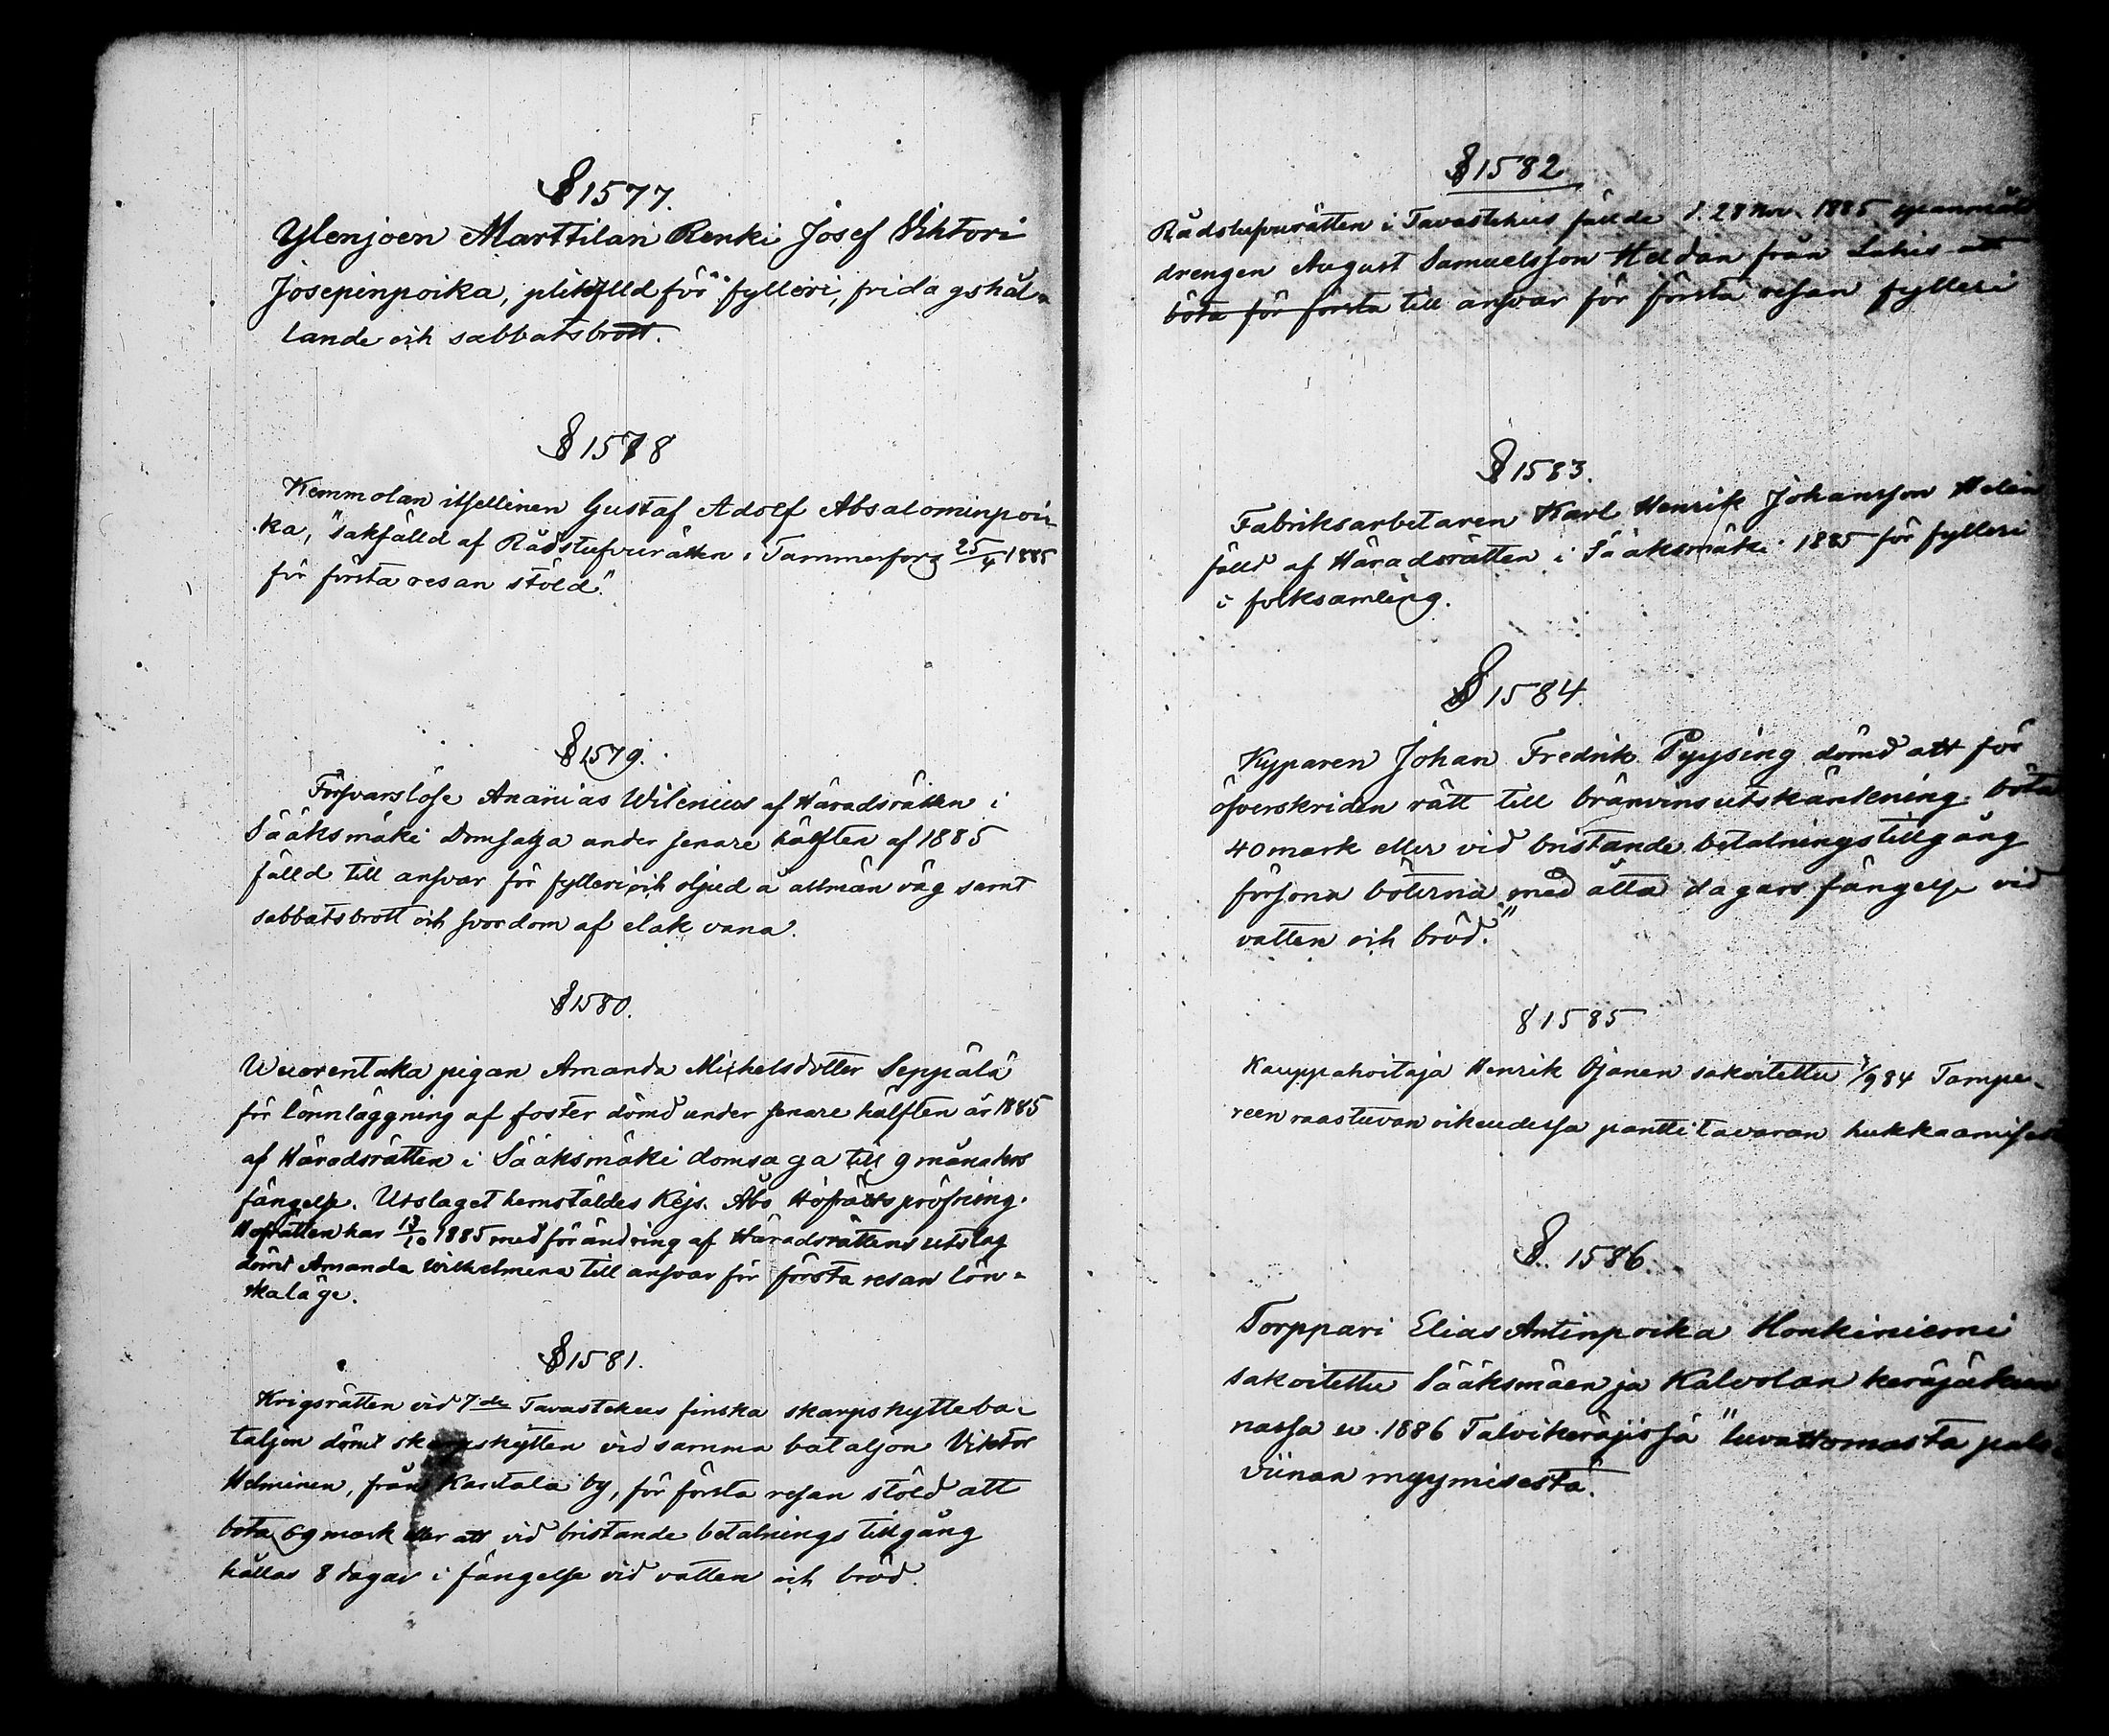 § 1577.
Ylenjoen Marttilan Renki Josef Viktori
Josepinpoika, pliktfälld för fylleri, fridagshål-
lande och sabbatsbrott.
§ 1578
Kemmolan itsellinen Gustaf Adolf Absalominpoi-
ka, "sakfälld af Rådstufvurätten i Tammerfors 25/4 1885
för första resan stöld."
§ 1579.
Försvarslöse Ananias Wilenius af Häradsrätten i
Sääksmäki Domsaga under senare hälften af 1885
fälld till ansvar för fylleri och oljud å allmän väg samt
sabbatsbrott och svordom af elak vana.
§ 1580.
Wuorentaka pigan Amanda Michelsdotter Seppälä
för lönnläggning af foster dömd under senare hälften år 1885
af Häradsrätten i Sääksmäki domsaga till 9 månaders
fängelse. Utslaget hemstäldes Kejs. Åbo Hofrätts pröfning.
Hofrätten har 13/10 1885 med förändring af Häradsrättens utslag
dömt Amanda Wilhelmina till ansvar för första resan lön-
skaläge.
§ 1581.
Krigsrätten vid 7de Tavastehus finska skarpskytteba-
taljon dömt skarpskytten vid samma bataljon Viktor
Helminen, från Kantala by, för första resan stöld att
böta 69 mark eller att vid bristande betalnings tillgång
hållas 8 dagar i fängelse vid vatten och bröd.
§ 1582
Rådstufvurätten i Tavastehus fällde d. 28 Nov. 1885
drengen August Samuelsson Heldan från Lahis att
böta för första till ansvar för första resan fylleri
§ 1583.
Fabriksarbetaren Karl Henrik Johansson Helin
fälld af Häradsrätten i Sääksmäki 1885 för fylleri
i folksamling.
§ 1584.
Kyparen Johan Fredrik Pyysing dömd att för
öfverskriden rätt till bränvinsutskänkning böta
40 mark eller vid bristande betalningstillgång
försona böterna med åtta dagars fängelse vid
vatten och bröd."
§ 1585
Kauppahoitaja Henrik Ojanen sakoitettu 1/9 84 Tampe-
reen raastuvan oikeudessa pantti tavaran hukkaamises
§. 1586.
Torppari Elias Antinpoika Honkiniemi
sakoitettu Sääksmäen ja Kalvolan keräjäkun
nassa w. 1886 Talvikeräjissä "luvattomasta palo-
viinan myymisestä.